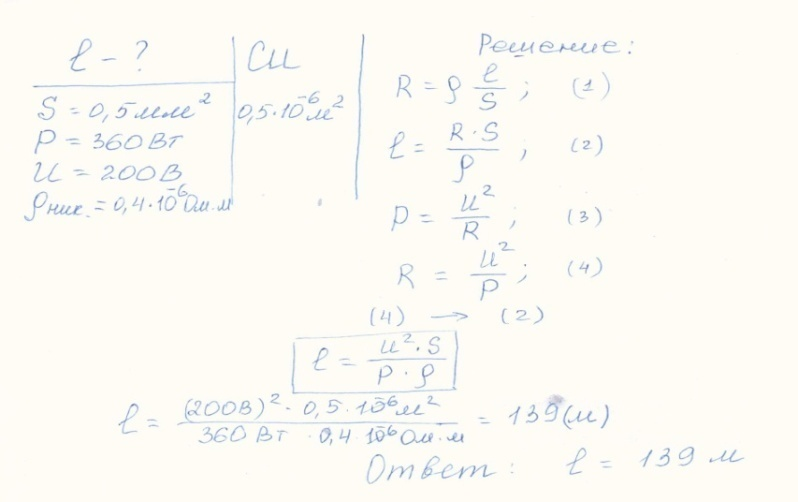 l - ?
СИ
S = 0,5мм²
0,5·10⁻⁶м²
P = 360Вт
U = 200В
ρник. = 0,4·10⁻⁶Ом·м
Решение:
R = ρ l/S ; (1)
l = R·S/ρ ; (2)
P = U²/R ; (3)
R = U²/P ; (4)
(4) → (2)
l = U²·S/P·ρ
l = (200В)²·0,5·10⁻⁶м²/360Вт·0,4·10⁻⁶Ом·м = 139(м)
Ответ: l = 139 м